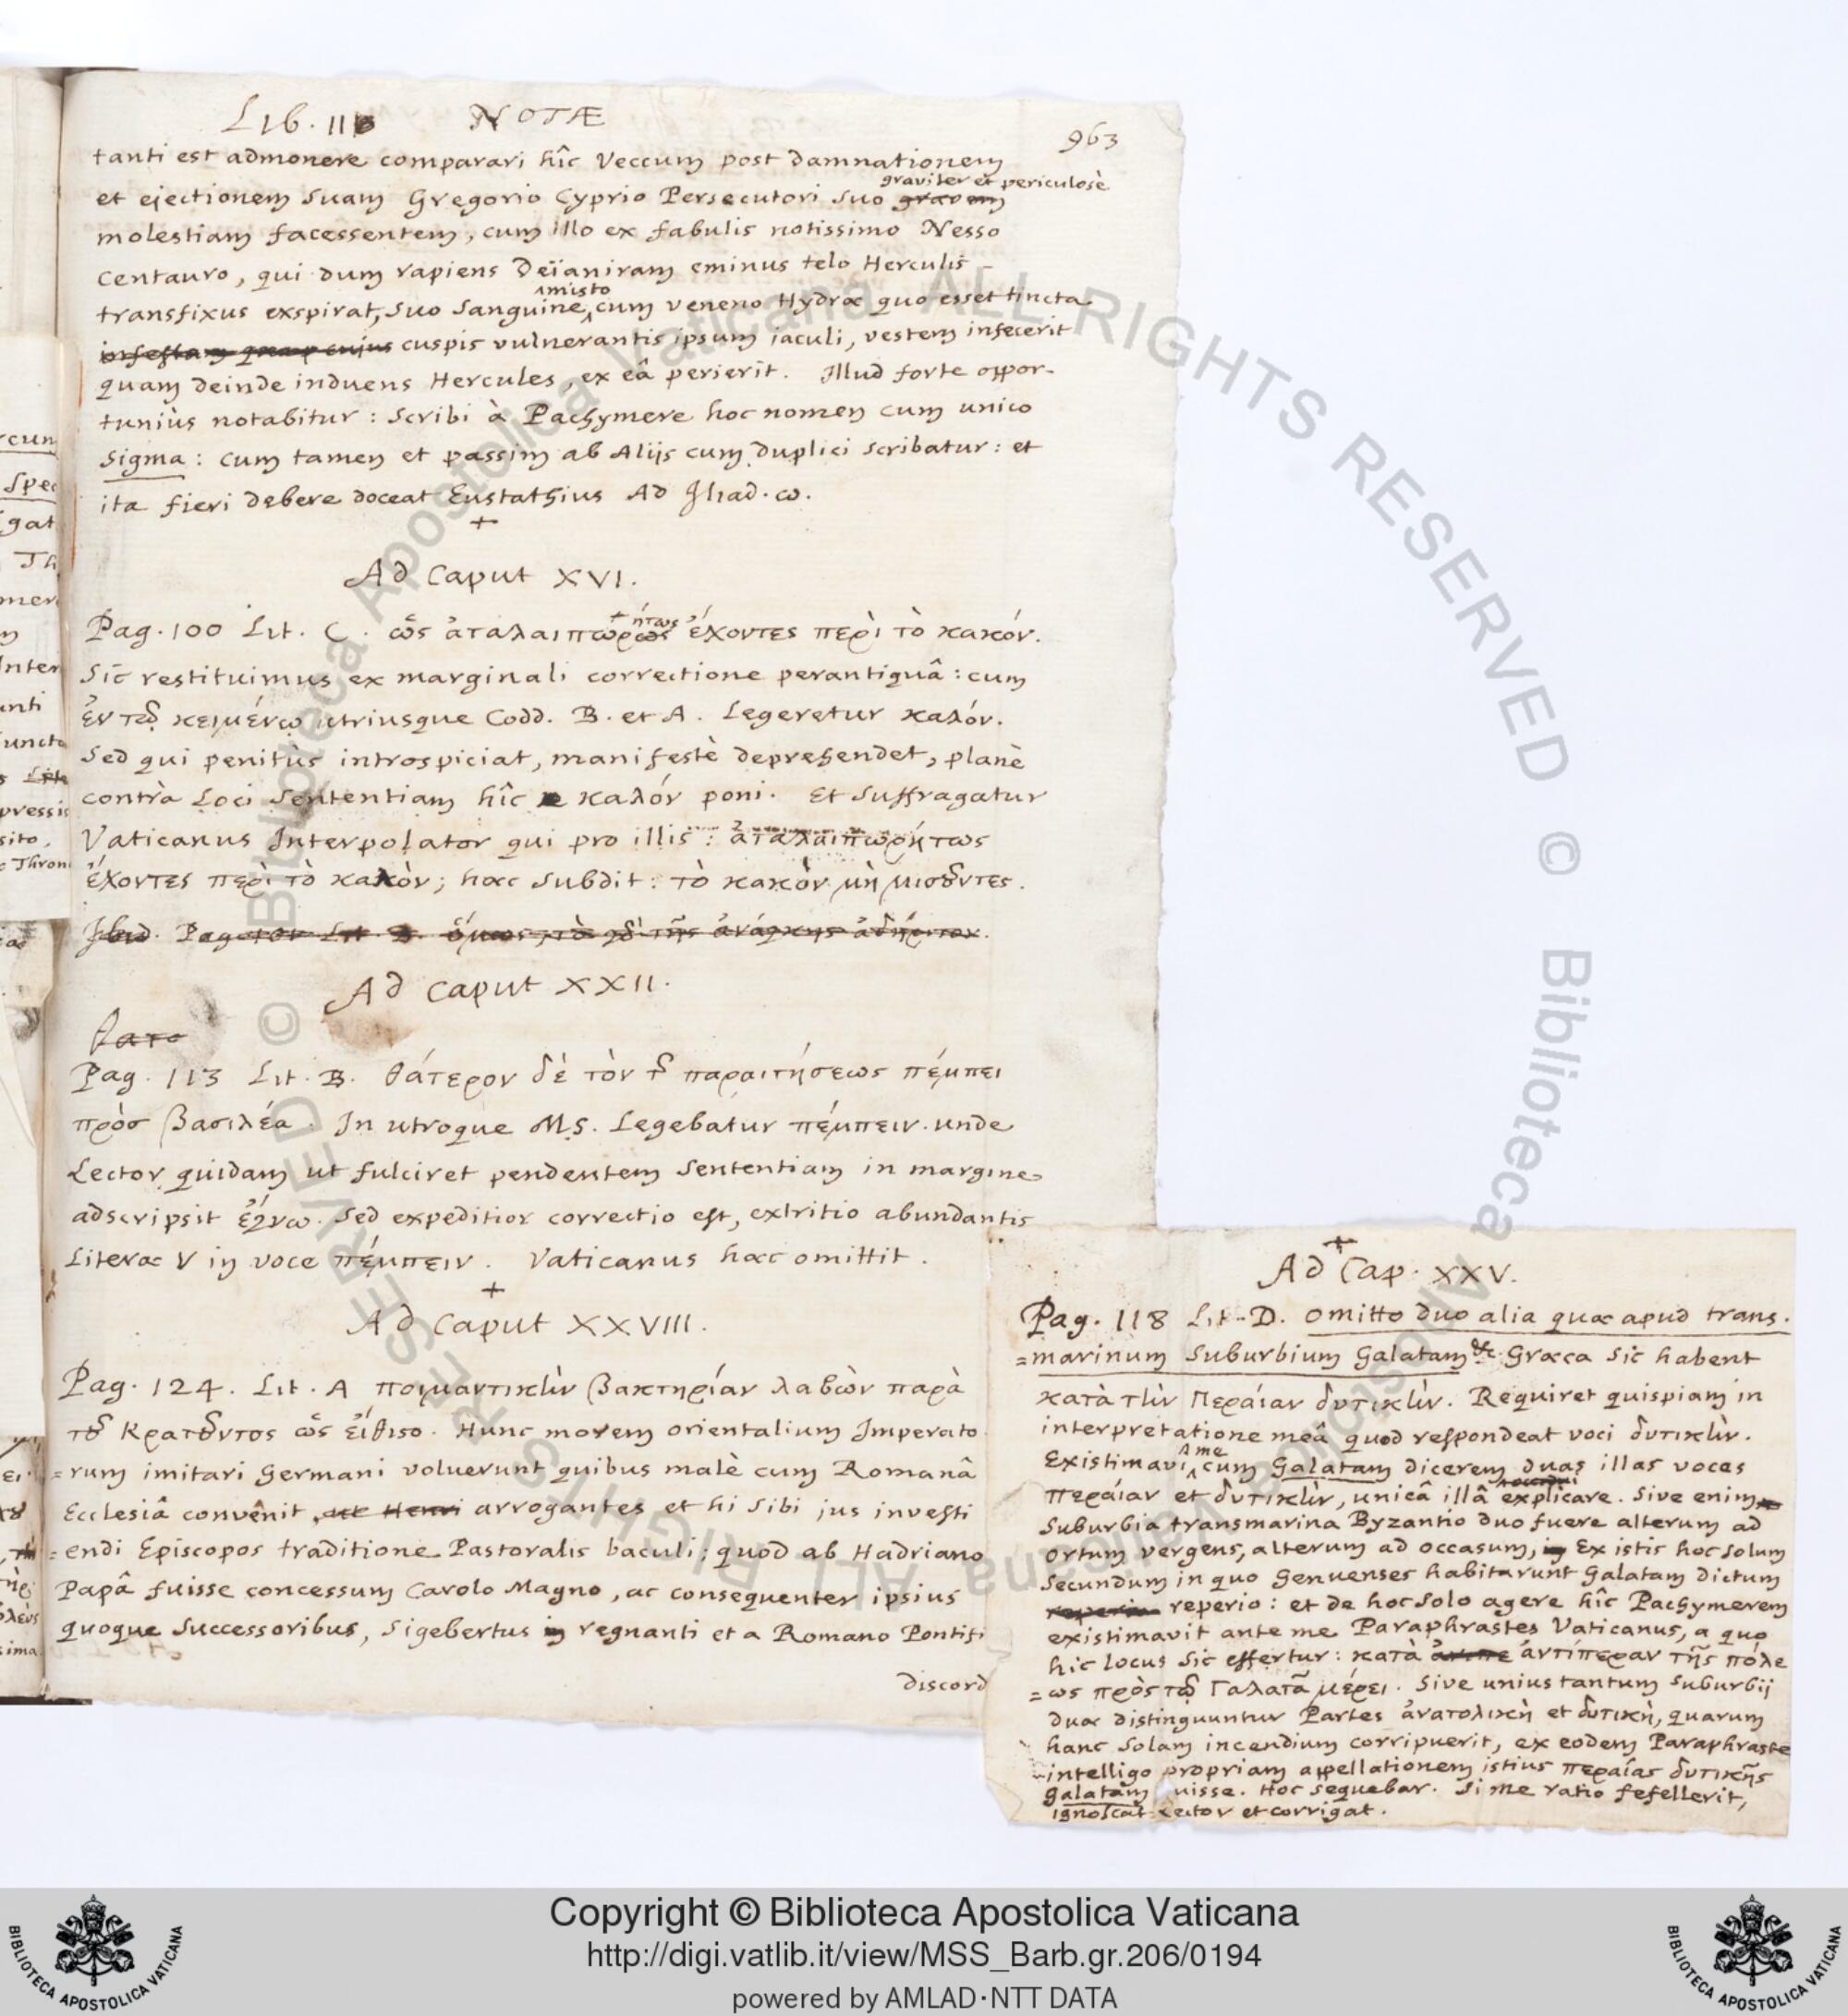 Lib. II NOTÆ
963
tanti est admonere comparari hîc Veccum post damnationem
graviter et periculosè
et ejectionem suam Gregorio Cyprio Persecutori suo gravem
molestiam facessentem, cum illo ex fabulis notissimo Nesso
Centauro, qui dum rapiens Deïaniram eminus telo Herculis
misto
transfixus exspirat, suo sanguine cum veneno Hydræ quo esset tincta
cujus cuspis vulnerantis ipsum iaculi, vestem infecerit
quam deinde induens Hercules, ex eâ perierit. Illud forte oppor-
tuniùs notabitur: scribi à Pachymere hoc nomen cum unico
Sigma: cum tamen et passim ab Aliis cum duplici scribatur: et
ita fieri debere doceat Eustathius Ad Iliad. ω.
+
Ad Caput XVI.
+ ήτως
Pag. 100 Lit. C. ὡς ἀταλαιπώρως ἔχοντες περὶ τὸ κακόν.
Sic restituimus ex marginali correctione perantiquâ: cum
ἐν τῷ κειμένῳ utriusque Codd. B. et A. Legeretur καλόν.
Sed qui penitùs introspiciat, manifestè deprehendet, planè
contrà Loci sententiam hîc καλόν poni. Et suffragatur
Vaticanus Interpolator qui pro illis: ἀταλαιπωρήτως
ἔχοντες περὶ τὸ κακὸν; hæc subdit: τὸ κακὸν μὴ μισοῦντες.
Ibid. Pag. 101 Lit. B. ὅμως τὸ γὸ τῆς ἀνάγκης ἀδήριτον.
Ad Caput XXII.
θατε
Pag. 113 Lit. B. θάτερον δὲ τὸν τ͂ παραιτήσεως πέμπει
πρὸς βασιλέα. In utroque MS. Legebatur πέμπειν. unde
Lector quidam ut fulciret pendentem sententiam in margine
adscripsit ἔγνω. Sed expeditior correctio est, extritio abundantis
Literæ ν in voce πέμπειν. Vaticanus hæc omittit.
+
Ad Caput XXVIII.
Pag. 124. Lit. A ποιμαντικὴν βακτηρίαν λαβὼν παρὰ
τοῦ Κρατοῦντος ὡς εἴθιστο. Hunc morem orientalium Imperato
=rum imitari Germani voluerunt quibus malè cum Romanâ
Ecclesiâ convênit, ut Henri arrogantes et hi sibi jus investi
=endi Episcopos traditione Pastoralis baculi; quod ab Hadriano
Papâ fuisse concessum Carolo Magno, ac consequenter ipsius
quoque Successoribus, Sigebertus in regnanti et a Romano Pontifi
discord
+
Ad Cap. XXV.
Pag. 118 Lit. D. Omitto duo alia quæ apud trans.
=marinum Suburbium Galatam &c. Græca sic habent
κατὰ τὴν Περαίαν δυτικὴν. Requiret quispiam in
interpretatione meâ quod respondeat voci δυτικὴν.
me
Existimavi cum Galatam dicerem duas illas voces
περαίαν et δυτικὴν, unicâ illâ explicare. Sive enim
Suburbia transmarina Byzantio duo fuere alterum ad
ortum vergens, alterum ad occasum, in Ex istis hoc solum
secundum in quo Genuenses habitarunt Galatam dictum
reperio: et de hoc solo agere hîc Pachymerem
existimavit ante me Paraphrastes Vaticanus, a quo
hic locus sic effertur: κατὰ ἀντίπεραν τῆς πόλε
=ως πρὸς τῷ Γαλατᾶ μέρει. Sive unius tantum suburbij
duæ distinguuntur Partes ἀνατολικὴ et δυτικὴ, quarum
hanc solam incendium corripuerit, ex eodem Paraphraste
intelligo propriam appellationem istius περαίας δυτικῆς
Galatam uisse. Hoc sequebar. Si me ratio fefellerit,
ignoscat Lector et corrigat.
Copyright © Biblioteca Apostolica Vaticana
http://digi.vatlib.it/view/MSS_Barb.gr.206/0194
powered by AMLAD·NTT DATA